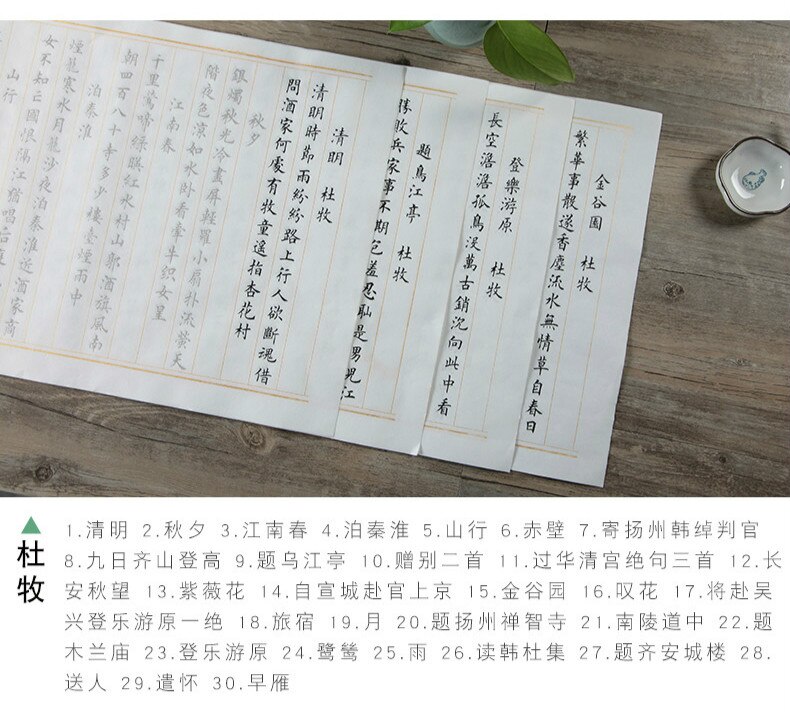 金谷園 杜牧
繁華事散逐香塵流水無情草自春日
登樂游原 杜牧
長空澹澹孤鳥沒萬古銷沉向此中看
題烏江亭 杜牧
勝敗兵家事不期包羞忍恥是男兒江
清明 杜牧
清明時節雨紛紛路上行人欲斷魂借
問酒家何處有牧童遙指杏花村
秋夕
銀燭秋光冷畫屏輕羅小扇扑流螢天
階夜色涼如水卧看牽牛织女星
江南春
千里鶯啼綠映紅水村山郭酒旗風南
朝四百八十寺多少樓臺煙雨中
泊秦淮
煙籠寒水月籠沙夜泊秦淮近酒家商
女不知亡國恨隔江猶唱后
山行
杜牧
1.清明 2.秋夕 3.江南春 4.泊秦淮 5.山行 6.赤壁 7.寄扬州韩绰判官
8.九日齐山登高 9.题乌江亭 10.赠别二首 11.过华清宫绝句三首 12.长
安秋望 13.紫薇花 14.自宣城赴官上京 15.金谷园 16.叹花 17.将赴吴
兴登乐游原一绝 18.旅宿 19.月 20.题扬州禅智寺 21.南陵道中 22.题
木兰庙 23.登乐游原 24.鹭鸶 25.雨 26.读韩杜集 27.题齐安城楼 28.
送人 29.遣怀 30.早雁